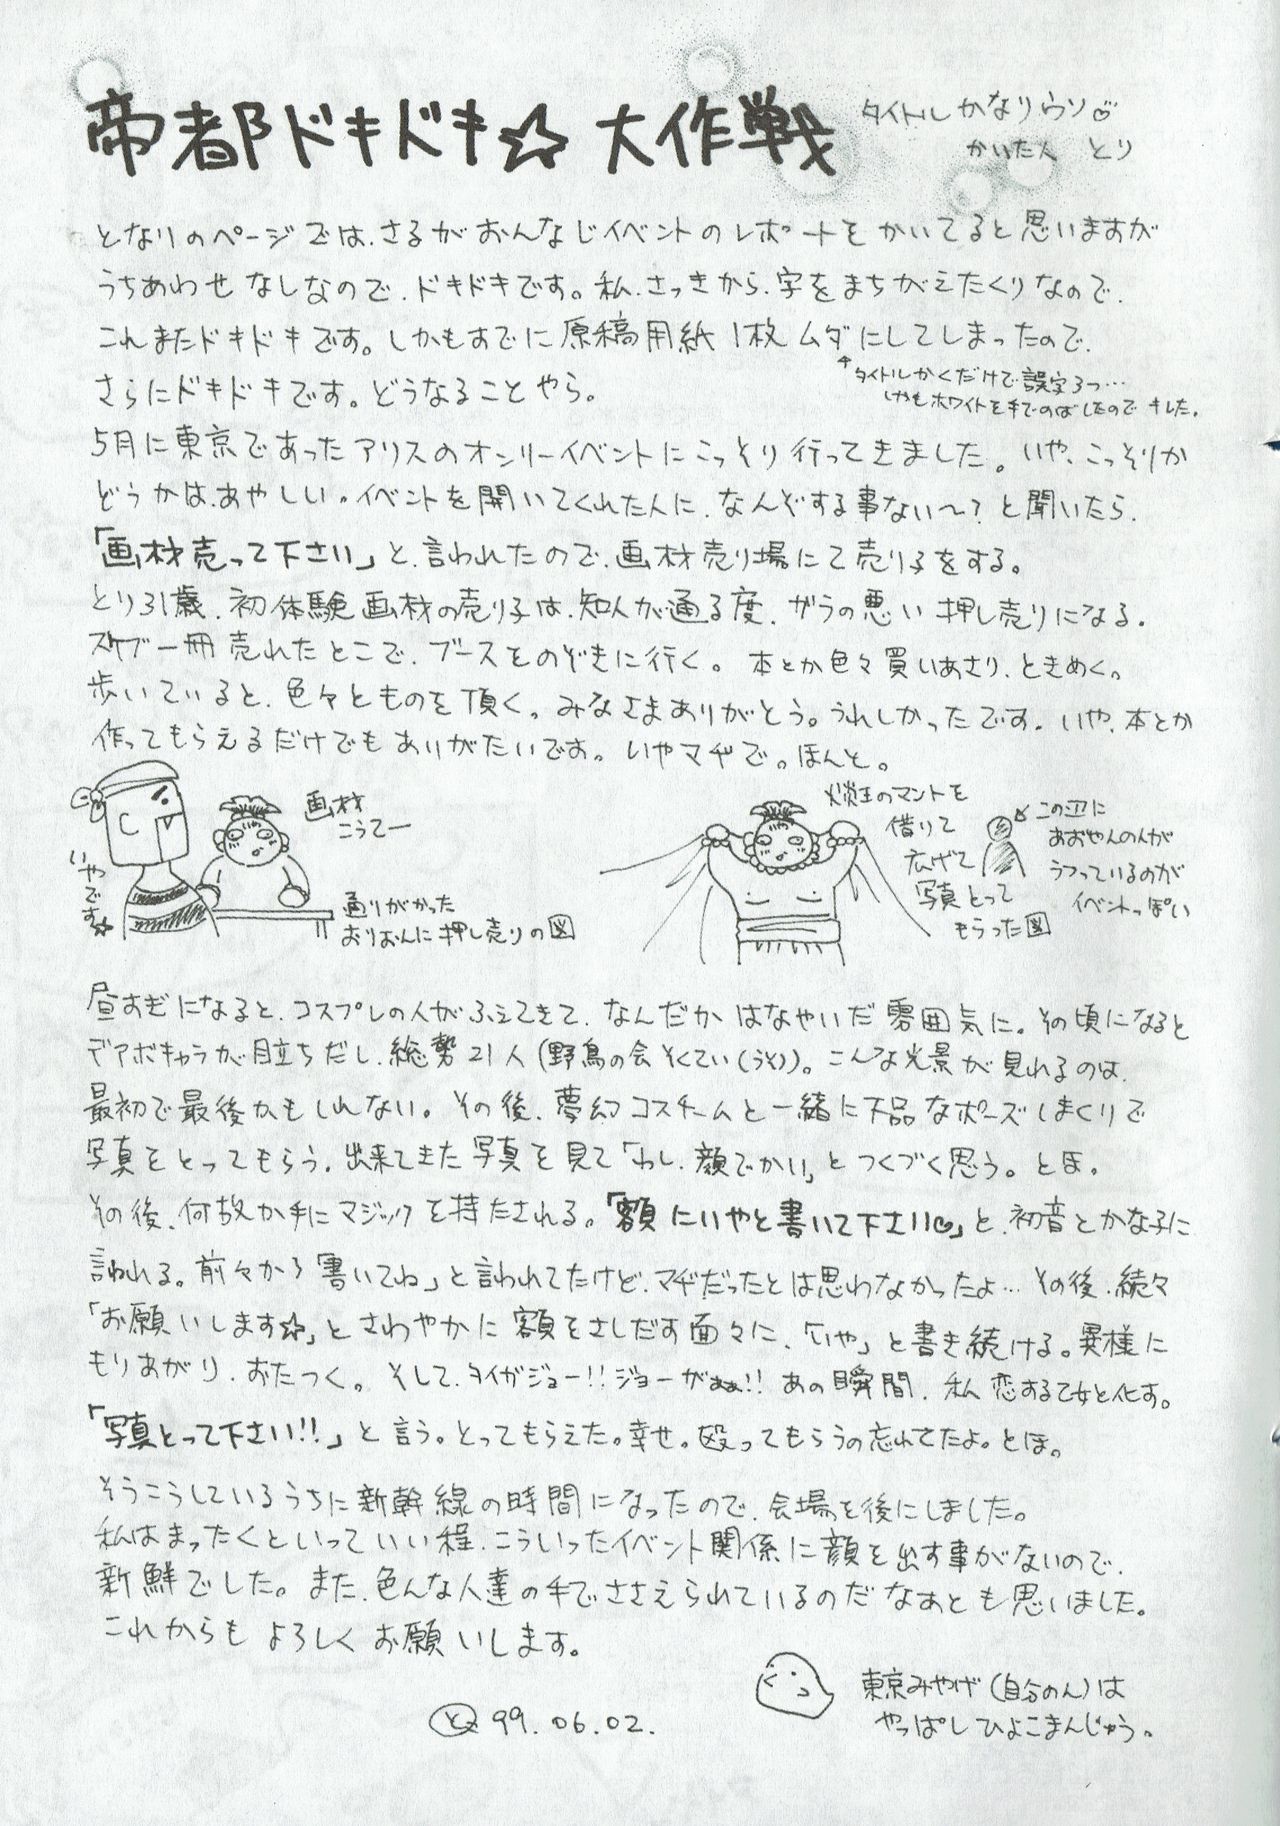 帝都ドキドキ☆大作戦
タイトルかなりウソ♡
かいた人 とり
となりのページでは、さるがおんなじイベントのレポートをかいてると思いますが
うちあわせなしなので、ドキドキです。私、さっきから、字をまちがえたくりなので、
これまたドキドキです。しかもすでに原稿用紙1枚ムダにしてしまったので、
さらにドキドキです。どうなることやら。
↑タイトルかくだけで誤字3つ…
しかもホワイトを手でのばしたのでキレた。
5月に東京であったアリスのオンリーイベントにこっそり行ってきました。いや、こっそりか
どうかは、あやしい。イベントを開いてくれた人に、なんぞする事ない〜?と聞いたら、
「画材売って下さい」と、言われたので、画材売り場にて売り子をする。
とり31歳、初体験画材の売り子は、知人が通る度、ガラの悪い押し売りになる。
スケブ一冊売れたとこで、ブースをのぞきに行く。本とか色々買いあさり、ときめく。
歩いていると、色々とものを頂く。みなさまありがとう。うれしかったです。いや、本とか
作ってもらえるだけでもありがたいです。いやマヂで。ほんと。
いやです☆
画材
こうてー
通りがかった
おりおんに押し売りの図
炎王のマントを
借りて
広げて
写真とって
もらった図
この辺に
あおやんの人が
うつっているのが
イベントっぽい
昼すぎになると、コスプレの人がふえてきて、なんだかはなやいだ雰囲気に。その頃になると
デアボキャラが目立ちだし、総勢21人(野鳥の会そくてい(うそ))。こんな光景が見れるのは、
最初で最後かもしれない。その後、夢幻コスチームと一緒に下品なポーズしまくりで
写真をとってもらう。出来てきた写真を見て「わし、顔でかい」とつくづく思う。とほ。
その後、何故か手にマジックを持たされる。「額にいやと書いて下さい♡」と、初音とかな子に
言われる。前々から「書いてね」と言われてたけど、マヂだったとは思わなかったよ…その後、続々
「お願いします☆」とさわやかに額をさしだす面々に、「いや」と書き続ける。異様に
もりあがり、おたつく。そして、タイガジョー!!ジョーがぁぁ!!あの瞬間、私恋する乙女と化す。
「写真とって下さい!!」と言う。とってもらえた。幸せ。殴ってもらうの忘れてたよ。とほ。
そうこうしているうちに新幹線の時間になったので、会場を後にしました。
私はまったくといっていい程、こういったイベント関係に顔を出す事がないので、
新鮮でした。また、色んな人達の手でささえられているのだなぁとも思いました。
これからもよろしくお願いします。
と 99.06.02.
東京みやげ(自分のん)は
やっぱしひよこまんじゅう。